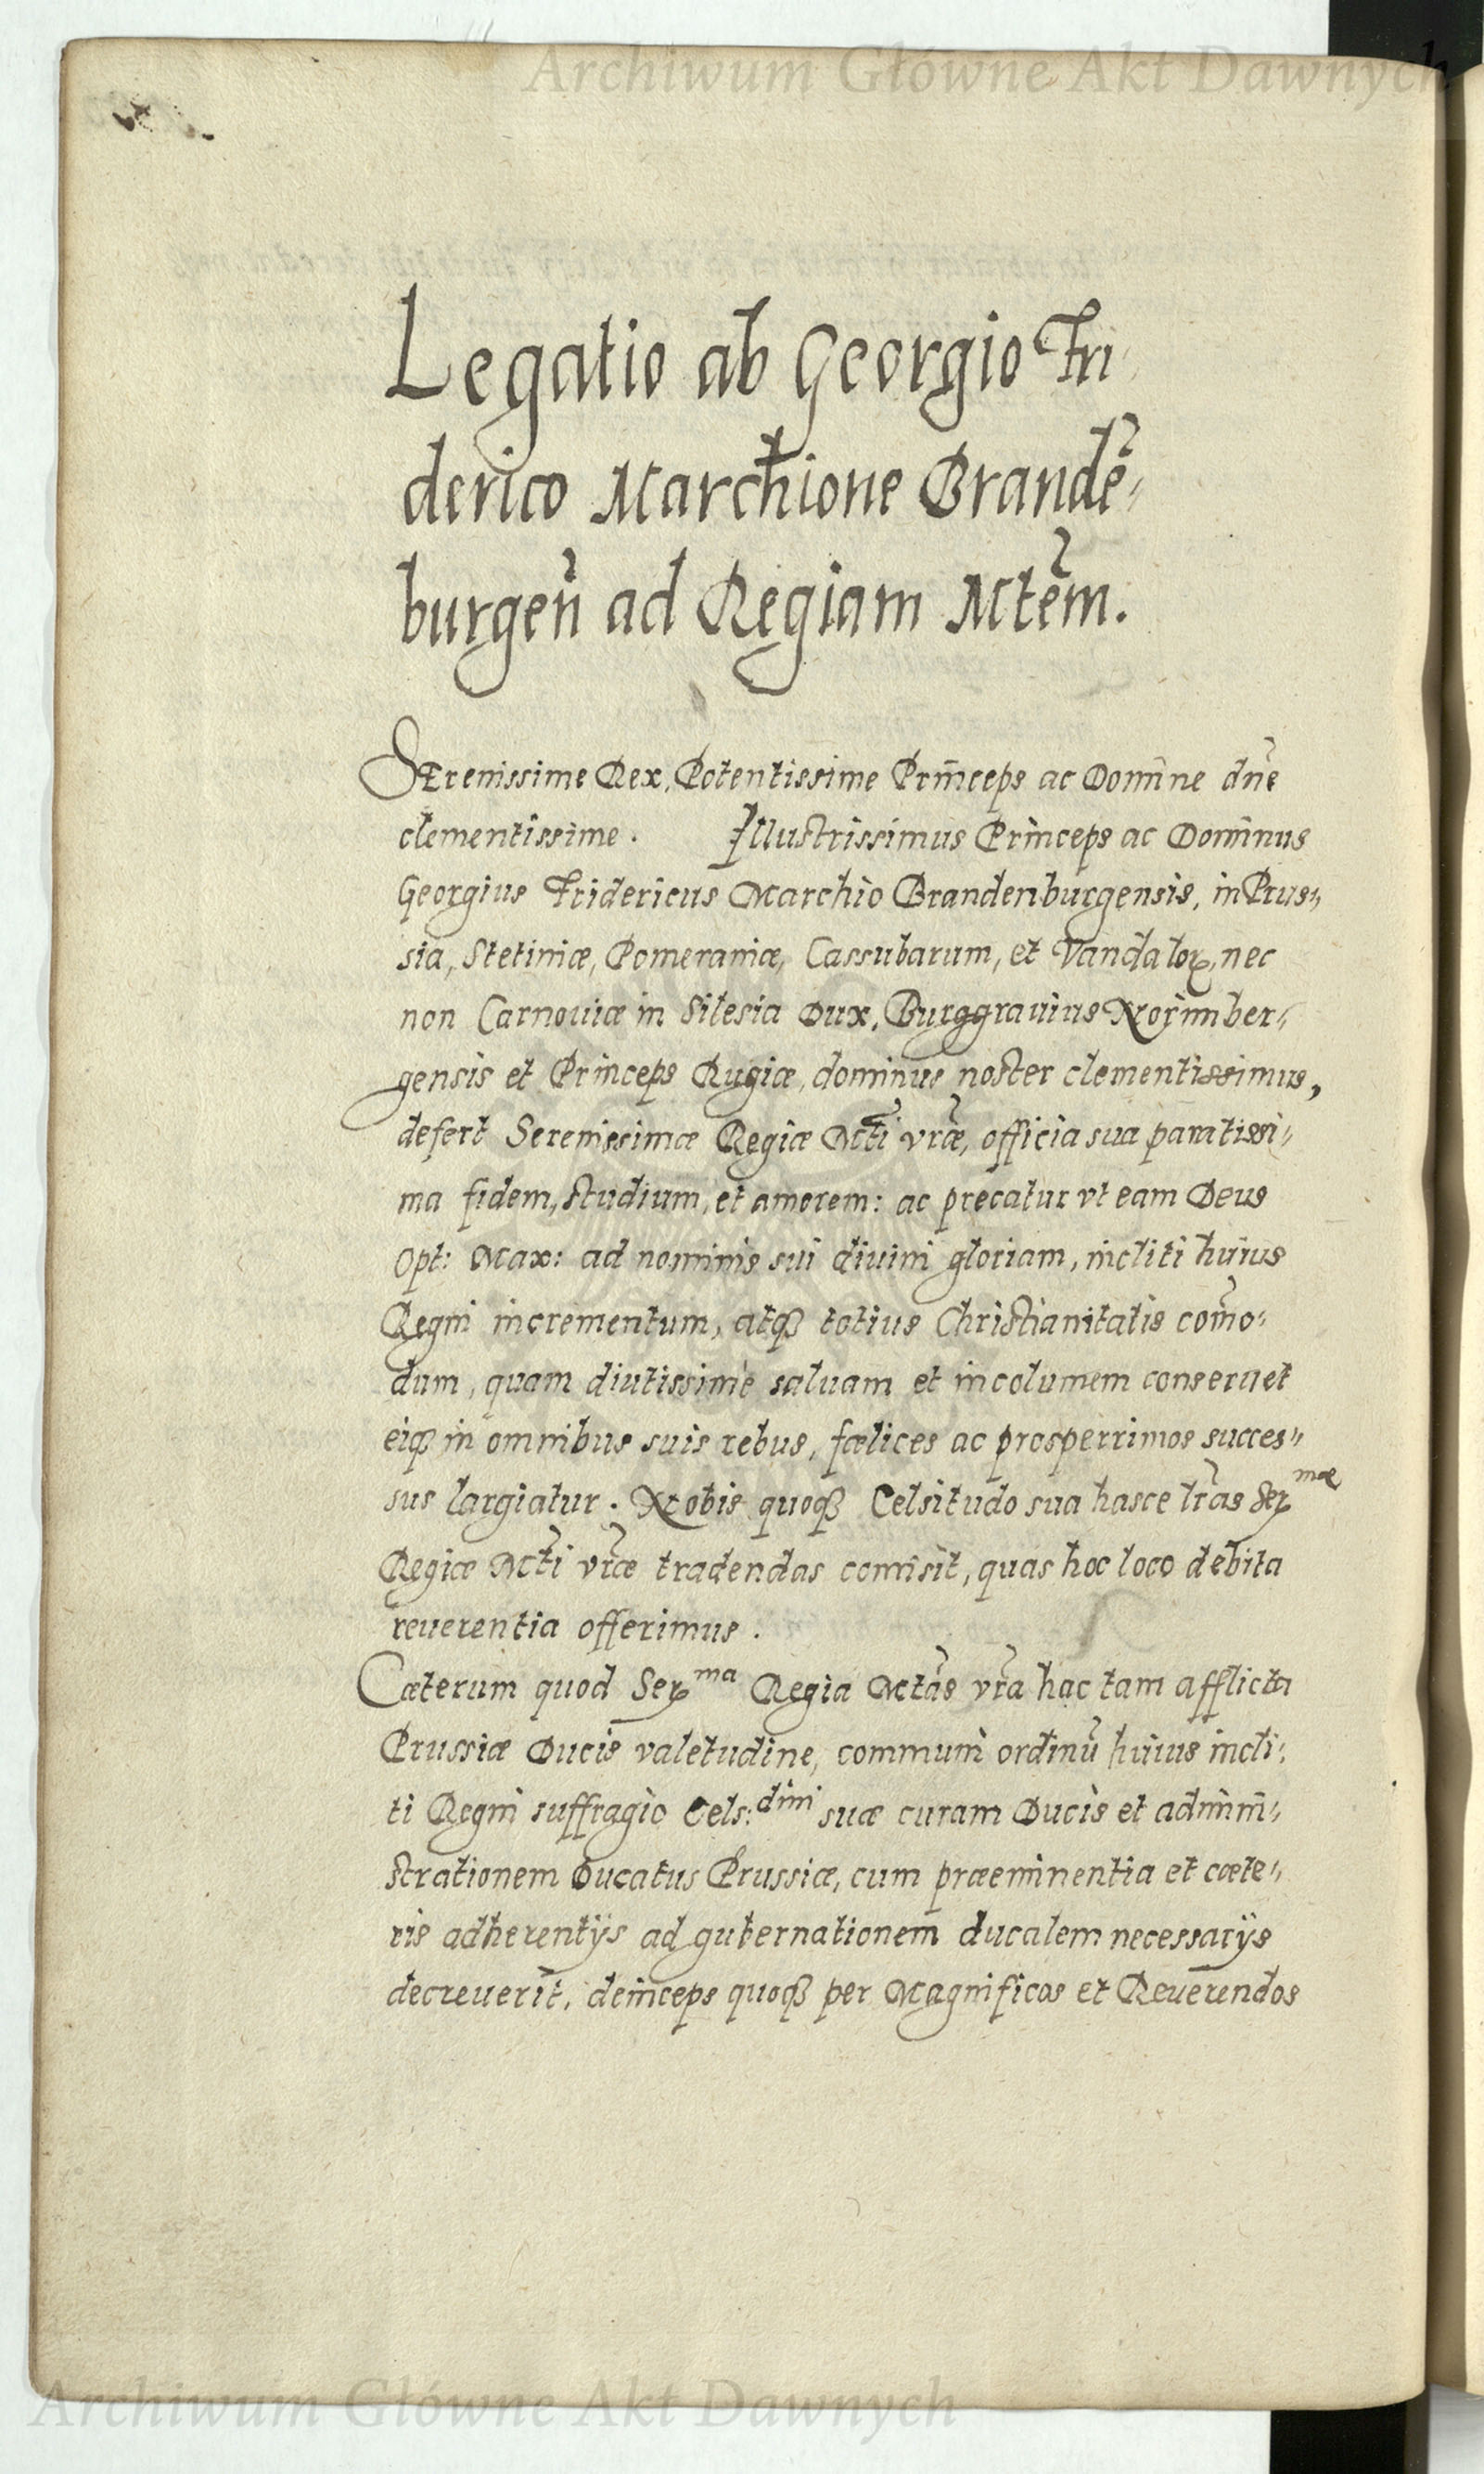 Archiwum Główne Akt Dawnych
Legatio ab Georgio Fri
derico Marchione Brandē-
burgeñ ad Regiam Mtēm.
SErenissime Rex, Potentissime Princeps ac Domine dñe
clementissime. Illustrissimus Princeps ac Dominus
Georgius Fridericus Marchio Brandenburgensis, in Prus-
sia, Stetiniæ, Pomeraniæ, Cassubarum, et Vandaloꝝ, nec
non Carnouiæ in Silesia Dux, Burggrauius Norimber-
gensis et Princeps Rugiæ, dominus noster clementissimus,
defert Serenissimæ Regiæ Mti vræ, officia sua paratissi-
ma fidem, studium, et amorem: ac precatur vt eam Deus
Opt: Max: ad nominis sui diuini gloriam, incliti huius
Regni incrementum, atqꝫ totius Christianitatis com̃o-
dum, quam diutissimè saluam et incolumem conseruet
eiqꝫ in omnibus suis rebus, fœlices ac prosperrimos succes-
sus largiatur. Nobis quoqꝫ Celsitudo sua hasce lr̃as Sermæ
Regiæ Mti vræ tradendas com̃isit, quas hoc loco debita
reuerentia offerimus.
Cæterum quod Serma Regia Mtas vra hac tam afflicta
Prussiæ Ducis valetudine, communi ordinũ huius incli-
ti Regni suffragio Cels:dini suæ curam Ducis et admini-
strationem Ducatus Prussiæ, cum præeminentia et cæte-
ris adherentijs ad gubernationem ducalem necessarijs
decreuerit, deinceps quoqꝫ per Magnificos et Reuerendos
Archiwum Główne Akt Dawnych